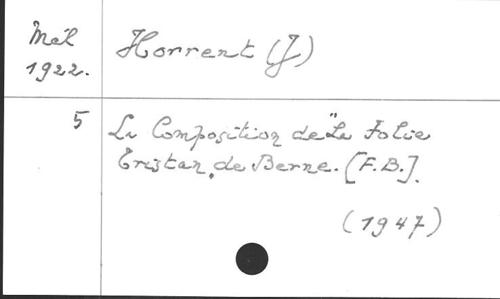 Mél
1922.
Horrent (J)
5
La Composition de "La Folie
Tristan" de Berne. [F.B.].
(1947)